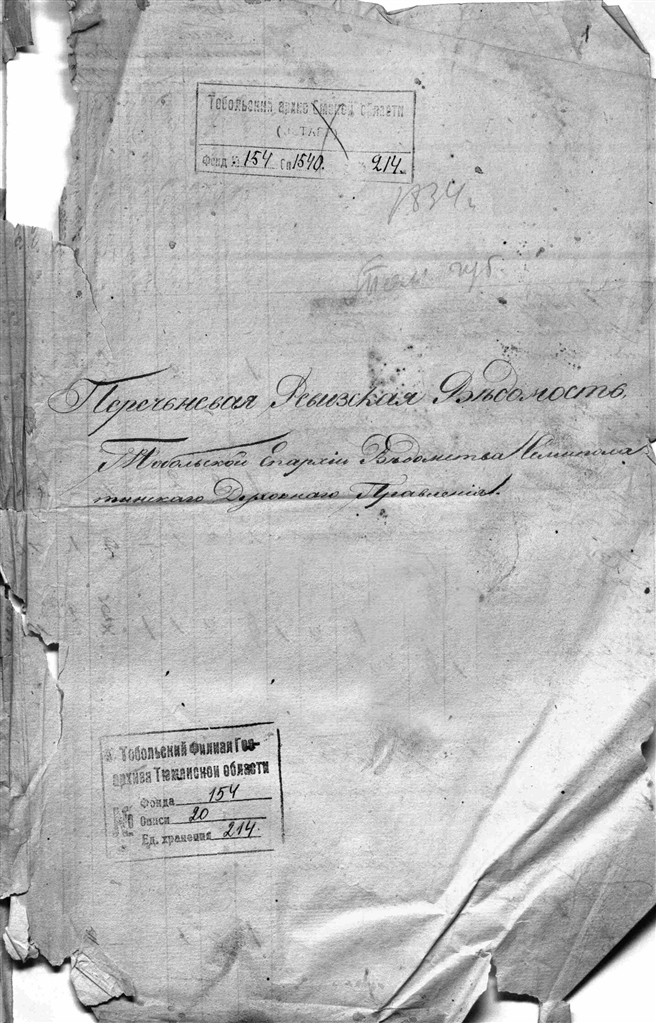 1
Тобольский архив Омской области
Фонд № 154 Оп 1540. 214.
1834 г
губ.
Перечьневая Ревизская Вѣдомость
Тобольской Епархіи Вѣдомства Семипола
тинскаго Духовнаго Правленія.
Тобольский Филиал Гос-
архива Тюменской области
№
Фонда 154
Описи 20
Ед. хранения 214.